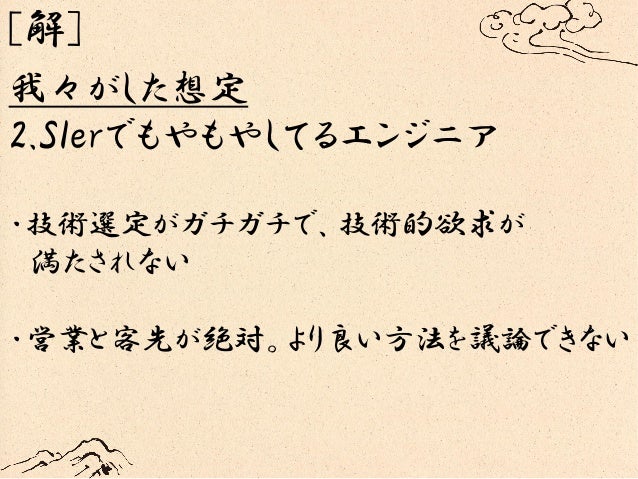 [解]
我々がした想定
2.SIerでもやもやしてるエンジニア
・技術選定がガチガチで、技術的欲求が
満たされない
・営業と客先が絶対。より良い方法を議論できない